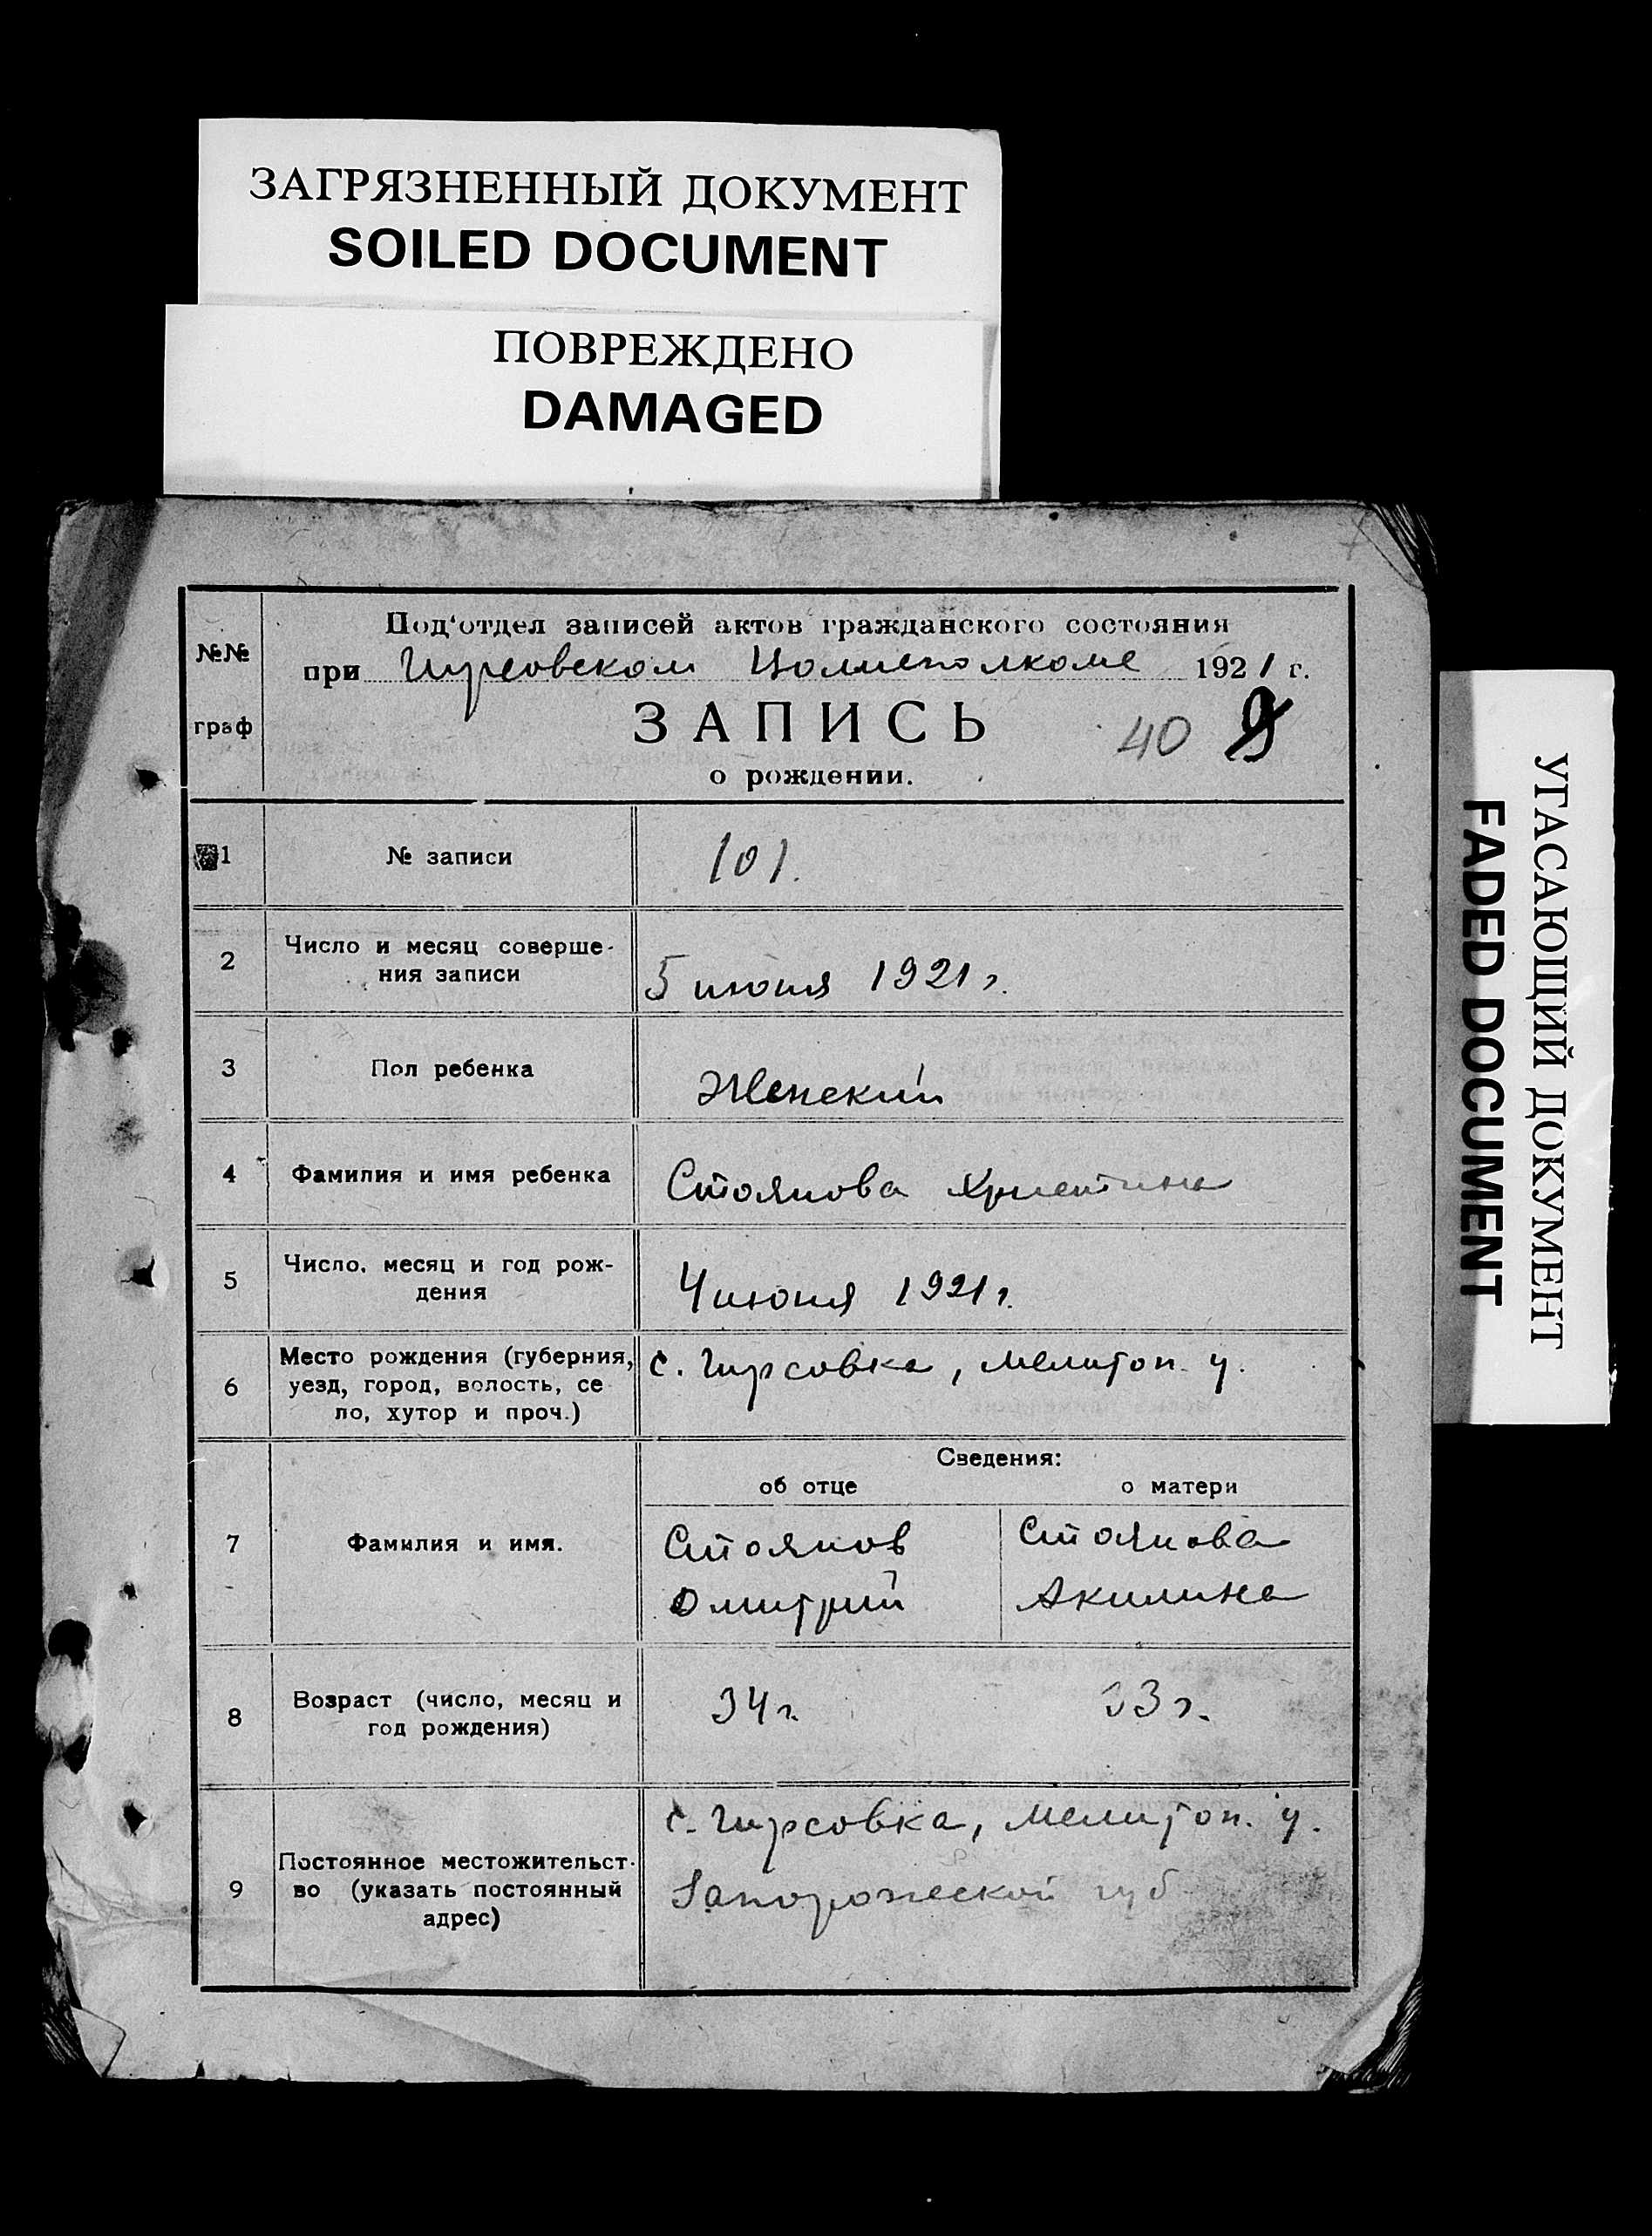 ЗАГРЯЗНЕННЫЙ ДОКУМЕНТ
SOILED DOCUMENT
ПОВРЕЖДЕНО
DAMAGED
УГАСАЮЩИЙ ДОКУМЕНТ
FADED DOCUMENT
№№
граф
Под‘отдел записей актов гражданского состояния
при Гирсовском Волисполкоме 1921 г.
ЗАПИСЬ
40 9
о рождении.
1 № записи 101.
2 Число и месяц соверше-
ния записи 5 июня 1921 г.
3 Пол ребенка Женский
4 Фамилия и имя ребенка Стоянова Христина
5 Число, месяц и год рож-
дения 4 июня 1921 г.
6 Место рождения (губерния,
уезд, город, волость, се
ло, хутор и проч.) с. Гирсовка, Мелитоп. у.
Сведения:
об отце о матери
7 Фамилия и имя. Стоянов Стоянова
Дмитрий Акилина
8 Возраст (число, месяц и
год рождения) 34 г. 33 г.
9 Постоянное местожительст-
во (указать постоянный
адрес) с. Гирсовка, Мелитоп. у.
Запорожской губ